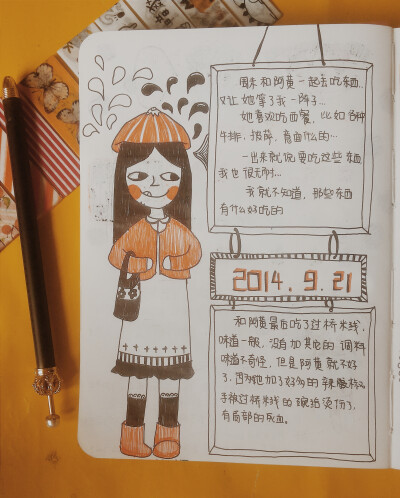 周末和阿黄一起去吃东西..
又让她等了我一阵子...
她喜欢吃西餐，比如各种
牛排、披萨、意面什么的...
一出来就说要吃这些东西
我也很无耐...
我就不知道，那些东西
有什么好吃的
2014.9.21
和阿黄最后吃了过桥米线，
味道一般，没有加其它的调料
味道不奇怪，但是阿黄就不好
了，因为她加了好多的辣椒
手被过桥米线的碗给烫伤了，
有局部的灰血。